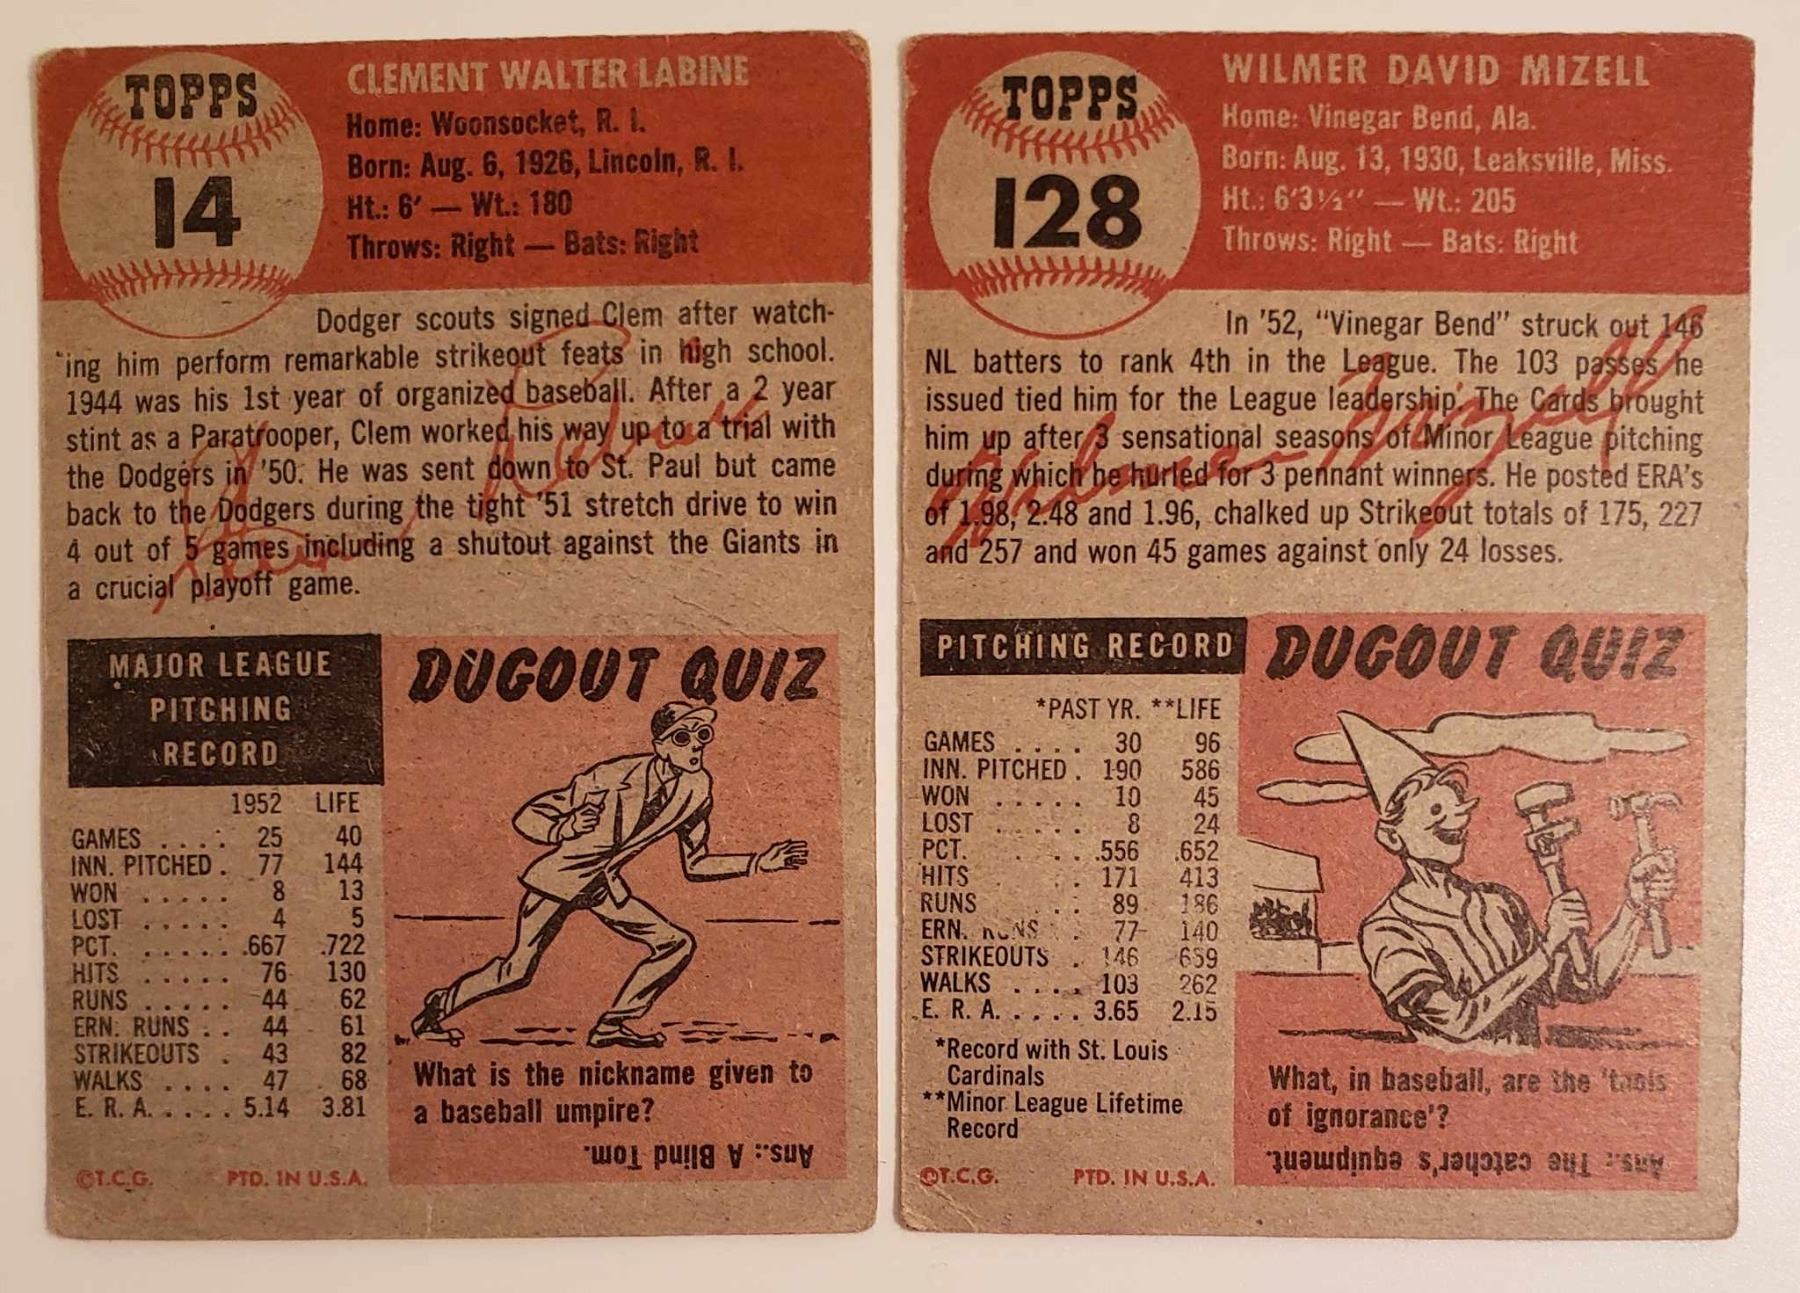 TOPPS
14
CLEMENT WALTER LABINE
Home: Woonsocket, R. I.
Born: Aug. 6, 1926, Lincoln, R. I.
Ht.: 6' — Wt.: 180
Throws: Right — Bats: Right
Dodger scouts signed Clem after watch-
ing him perform remarkable strikeout feats in high school.
1944 was his 1st year of organized baseball. After a 2 year
stint as a Paratrooper, Clem worked his way up to a trial with
the Dodgers in '50. He was sent down to St. Paul but came
back to the Dodgers during the tight '51 stretch drive to win
4 out of 5 games including a shutout against the Giants in
a crucial playoff game.
MAJOR LEAGUE
PITCHING
RECORD
1952 LIFE
GAMES . . . . 25 40
INN. PITCHED . 77 144
WON . . . . . 8 13
LOST . . . . . 4 5
PCT. . . . . . .667 .722
HITS . . . . . 76 130
RUNS . . . . . 44 62
ERN. RUNS . . 44 61
STRIKEOUTS . 43 82
WALKS . . . . 47 68
E. R. A. . . . . 5.14 3.81
©T.C.G. PTD. IN U.S.A.
DUGOUT QUIZ
What is the nickname given to
a baseball umpire?
Ans.: A Blind Tom.
TOPPS
128
WILMER DAVID MIZELL
Home: Vinegar Bend, Ala.
Born: Aug. 13, 1930, Leaksville, Miss.
Ht.: 6'3½" — Wt.: 205
Throws: Right — Bats: Right
In '52, "Vinegar Bend" struck out 146
NL batters to rank 4th in the League. The 103 passes he
issued tied him for the League leadership. The Cards brought
him up after 3 sensational seasons of Minor League pitching
during which he hurled for 3 pennant winners. He posted ERA's
of 1.98, 2.48 and 1.96, chalked up Strikeout totals of 175, 227
and 257 and won 45 games against only 24 losses.
Wilmer Mizell
PITCHING RECORD
*PAST YR. **LIFE
GAMES . . . . 30 96
INN. PITCHED . 190 586
WON . . . . . 10 45
LOST . . . . . 8 24
PCT. . . . .556 .652
HITS . . 171 413
RUNS . . 89 186
ERN. RUNS . . 77 140
STRIKEOUTS . 146 659
WALKS . . . . 103 262
E. R. A. . . . . 3.65 2.15
*Record with St. Louis
Cardinals
**Minor League Lifetime
Record
©T.C.G. PTD. IN U.S.A.
DUGOUT QUIZ
What, in baseball, are the 'tools
of ignorance'?
Ans.: The catcher's equipment.